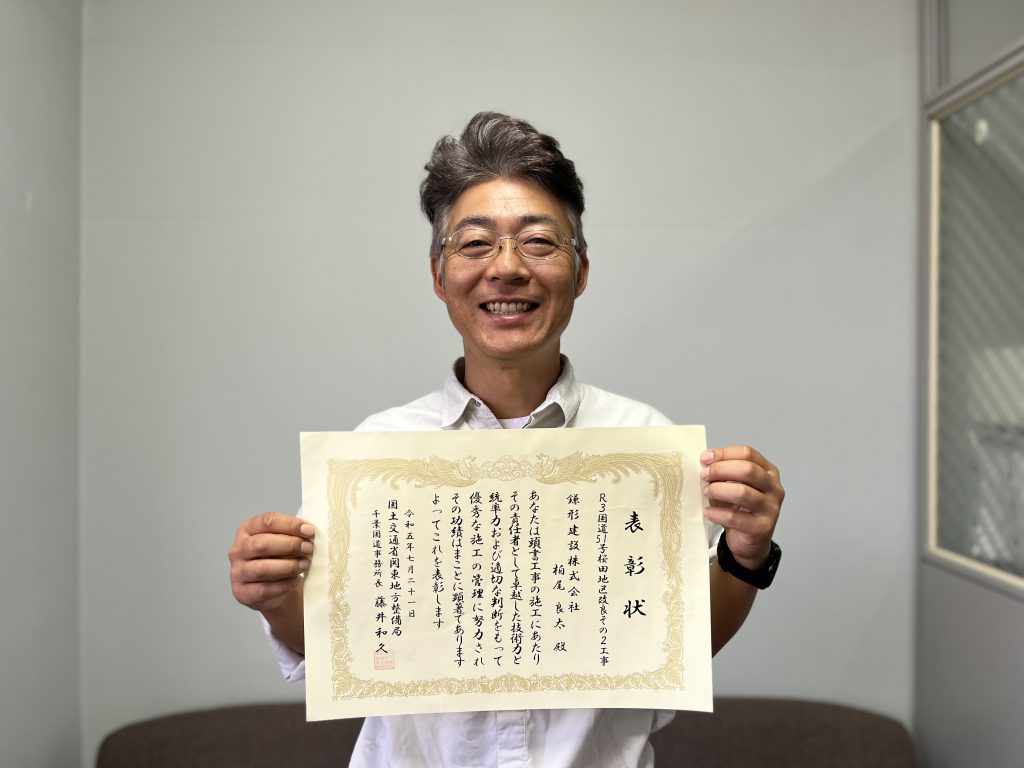 表彰状
R3国道51号桜田地区改良その2工事
鎌形建設株式会社
柏尾良太 殿
あなたは頭書工事の施工にあたり
その責任者として卓越した技術力と
統率力および適切な判断をもって
優秀な施工の管理に努力され
その功績はまことに顕著であります
よってこれを表彰します
令和五年七月二十一日
国土交通省関東地方整備局
千葉国道事務所長 藤井和久